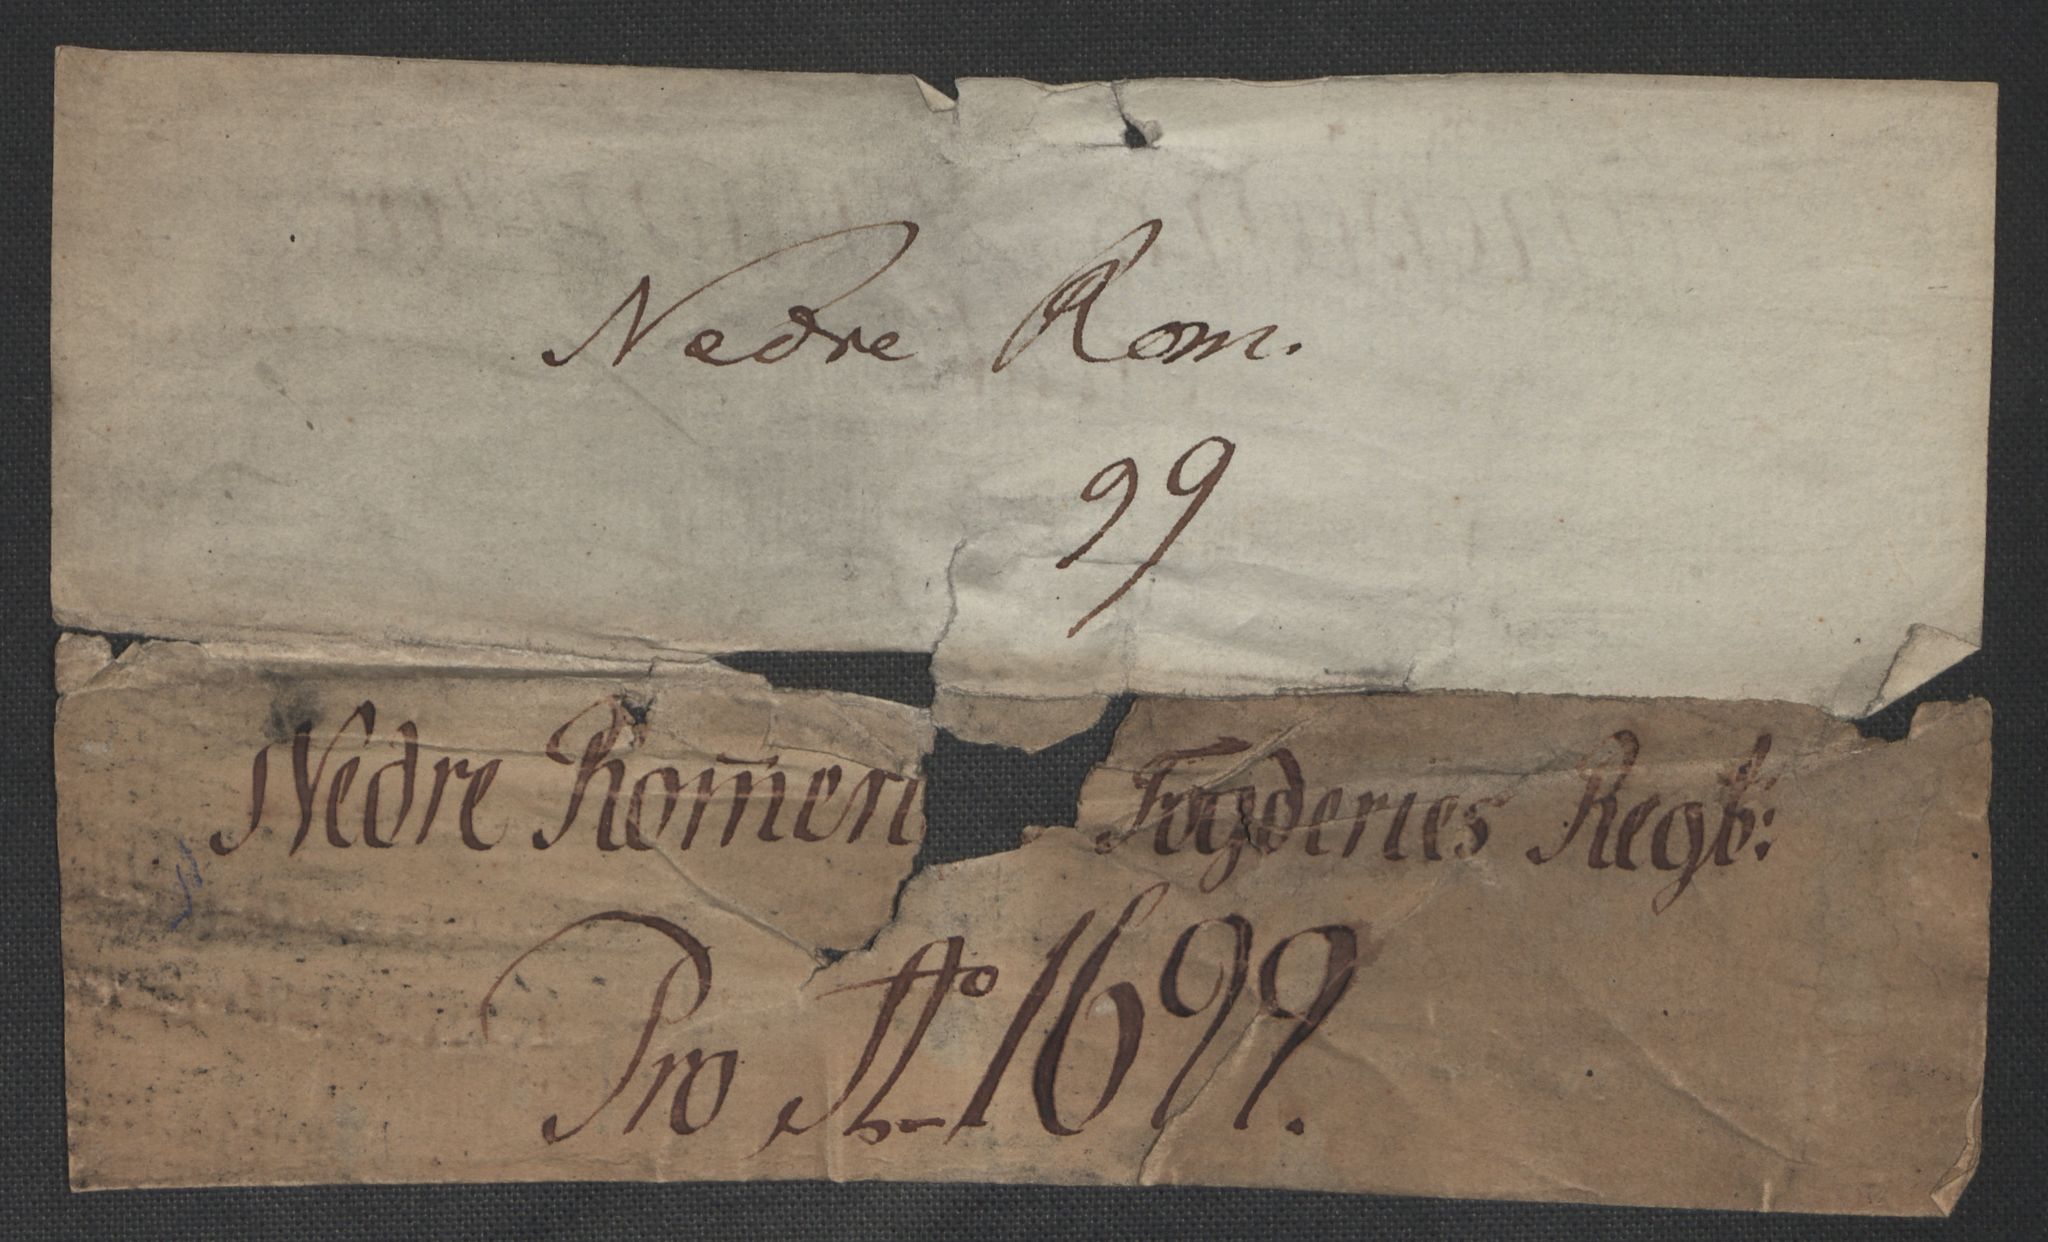 Nedre Rom.
99
Nedre Romeri Fogderies Regb:
Pro Ao 1699.